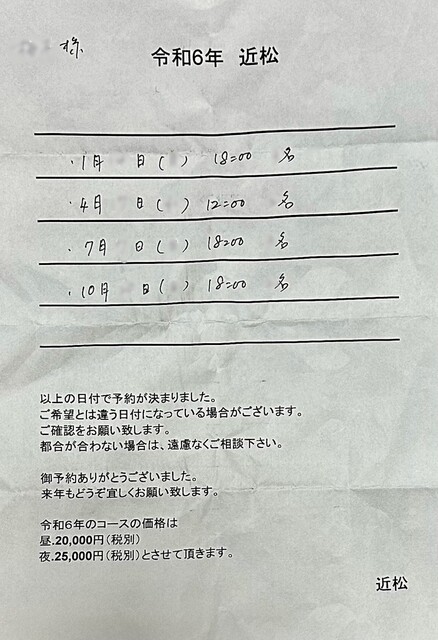 様
令和6年 近松
・1月 日( ) 18:00 名
・4月 日( ) 12:00 名
・7月 日( ) 18:00 名
・10月 日( ) 18:00 名
以上の日付で予約が決まりました。
ご希望とは違う日付になっている場合がございます。
ご確認をお願い致します。
都合が合わない場合は、遠慮なくご相談下さい。
御予約ありがとうございました。
来年もどうぞ宜しくお願い致します。
令和6年のコースの価格は
昼.20,000円(税別)
夜.25,000円(税別)とさせて頂きます。
近松